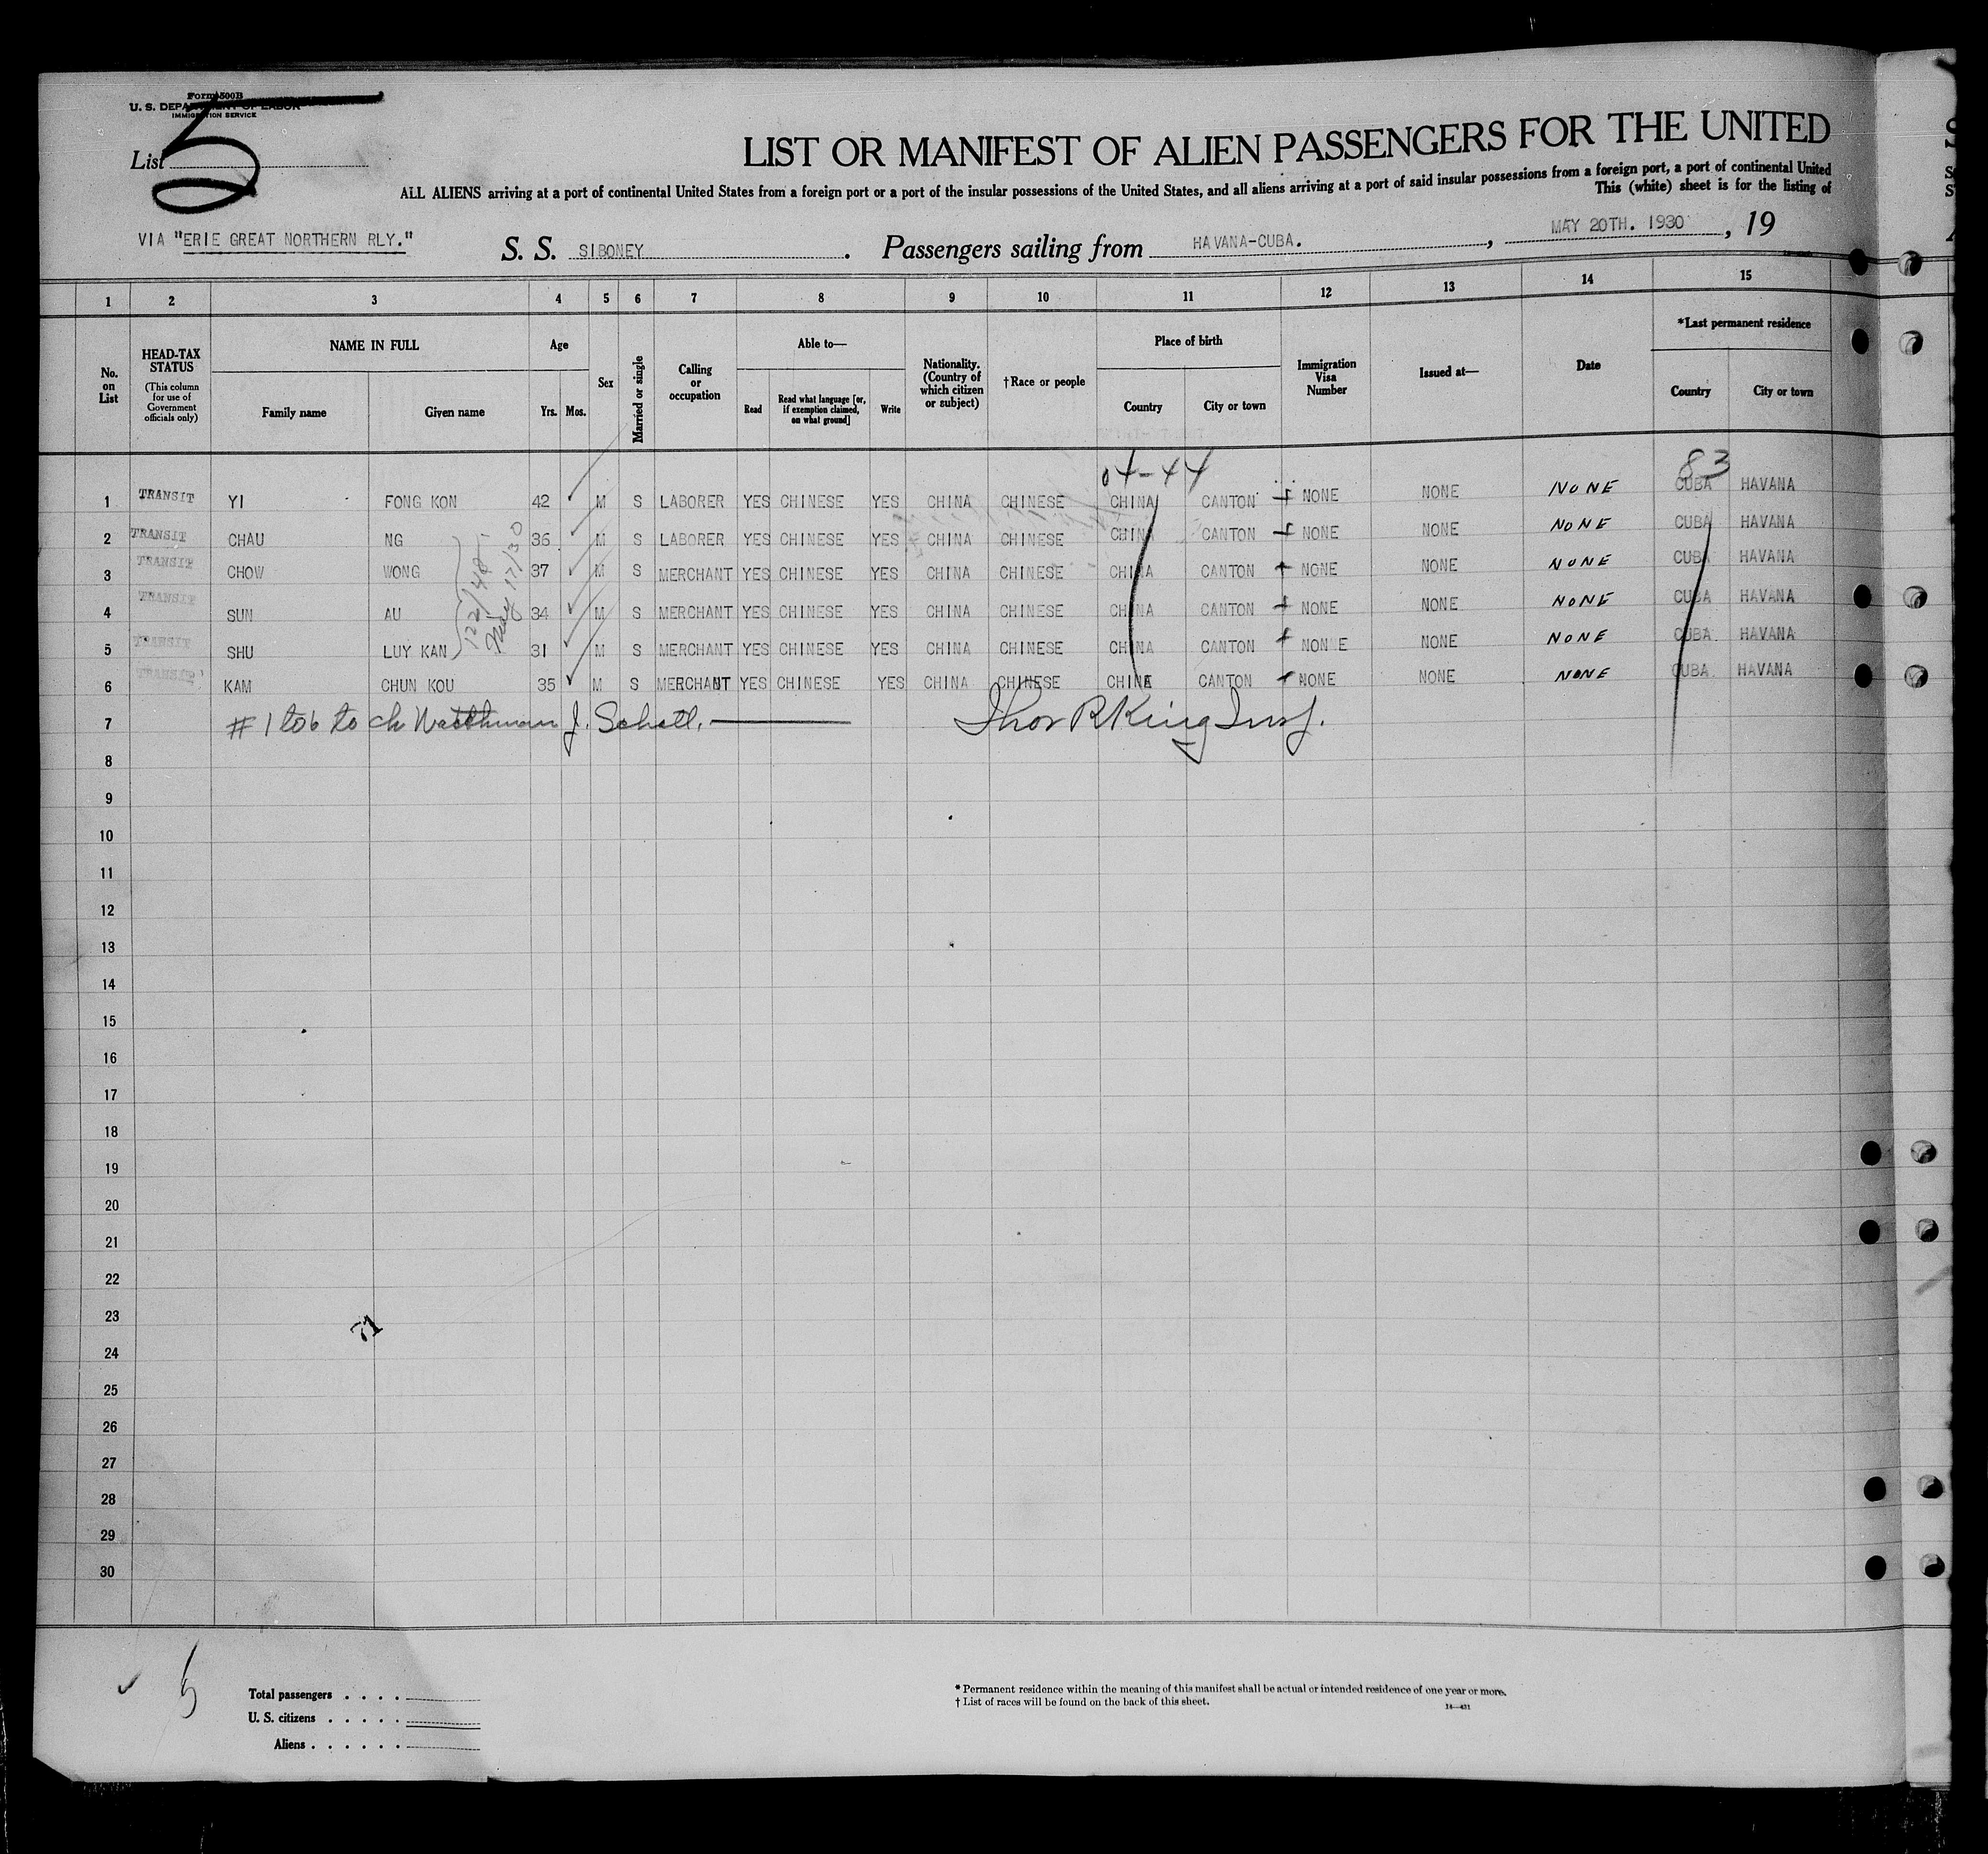 Form 500B
U. S. DEPARTMENT OF LABOR
IMMIGRATION SERVICE
List 5
LIST OR MANIFEST OF ALIEN PASSENGERS FOR THE UNITED
ALL ALIENS arriving at a port of continental United States from a foreign port or a port of the insular possessions of the United States, and all aliens arriving at a port of said insular possessions from a foreign port, a port of continental United
This (white) sheet is for the listing of
VIA "ERIE GREAT NORTHERN RLY."
S. S. SIBONEY . Passengers sailing from HAVANA-CUBA. , MAY 20TH. 1930 , 19
1 2 3 4 5 6 7 8 9 10 11 12 13 14 15
No. on List
HEAD-TAX STATUS
(This column for use of Government officials only)
NAME IN FULL
Family name Given name
Age
Yrs. Mos.
Sex
Married or single
Calling or occupation
Able to—
Read Read what language [or, if exemption claimed, on what ground] Write
Nationality. (Country of which citizen or subject)
†Race or people
Place of birth
Country City or town
Immigration Visa Number
Issued at—
Date
*Last permanent residence
Country City or town
04-44 83
1 TRANSIT YI FONG KON 42 M S LABORER YES CHINESE YES CHINA CHINESE CHINA CANTON NONE NONE NONE CUBA HAVANA
2 TRANSIT CHAU NG 36 M S LABORER YES CHINESE YES CHINA CHINESE CHINA CANTON NONE NONE NONE CUBA HAVANA
3 TRANSIT CHOW WONG 37 M S MERCHANT YES CHINESE YES CHINA CHINESE CHINA CANTON NONE NONE NONE CUBA HAVANA
4 TRANSIT SUN AU 34 M S MERCHANT YES CHINESE YES CHINA CHINESE CHINA CANTON NONE NONE NONE CUBA HAVANA
5 TRANSIT SHU LUY KAN 31 M S MERCHANT YES CHINESE YES CHINA CHINESE CHINA CANTON NONNE NONE NONE CUBA HAVANA
6 TRANSIT KAM CHUN KOU 35 M S MERCHANT YES CHINESE YES CHINA CHINESE CHINA CANTON NONE NONE NONE CUBA HAVANA
7 # 1 to 6 to ch Watchman J. Schall. Thos R King Insp.
8
9
10
11
12
13
14
15
16
17
18
19
20
21
22
23
71
24
25
26
27
28
29
30
Total passengers . . . .
U. S. citizens . . . . .
Aliens . . . . . .
* Permanent residence within the meaning of this manifest shall be actual or intended residence of one year or more.
† List of races will be found on the back of this sheet.
14—431